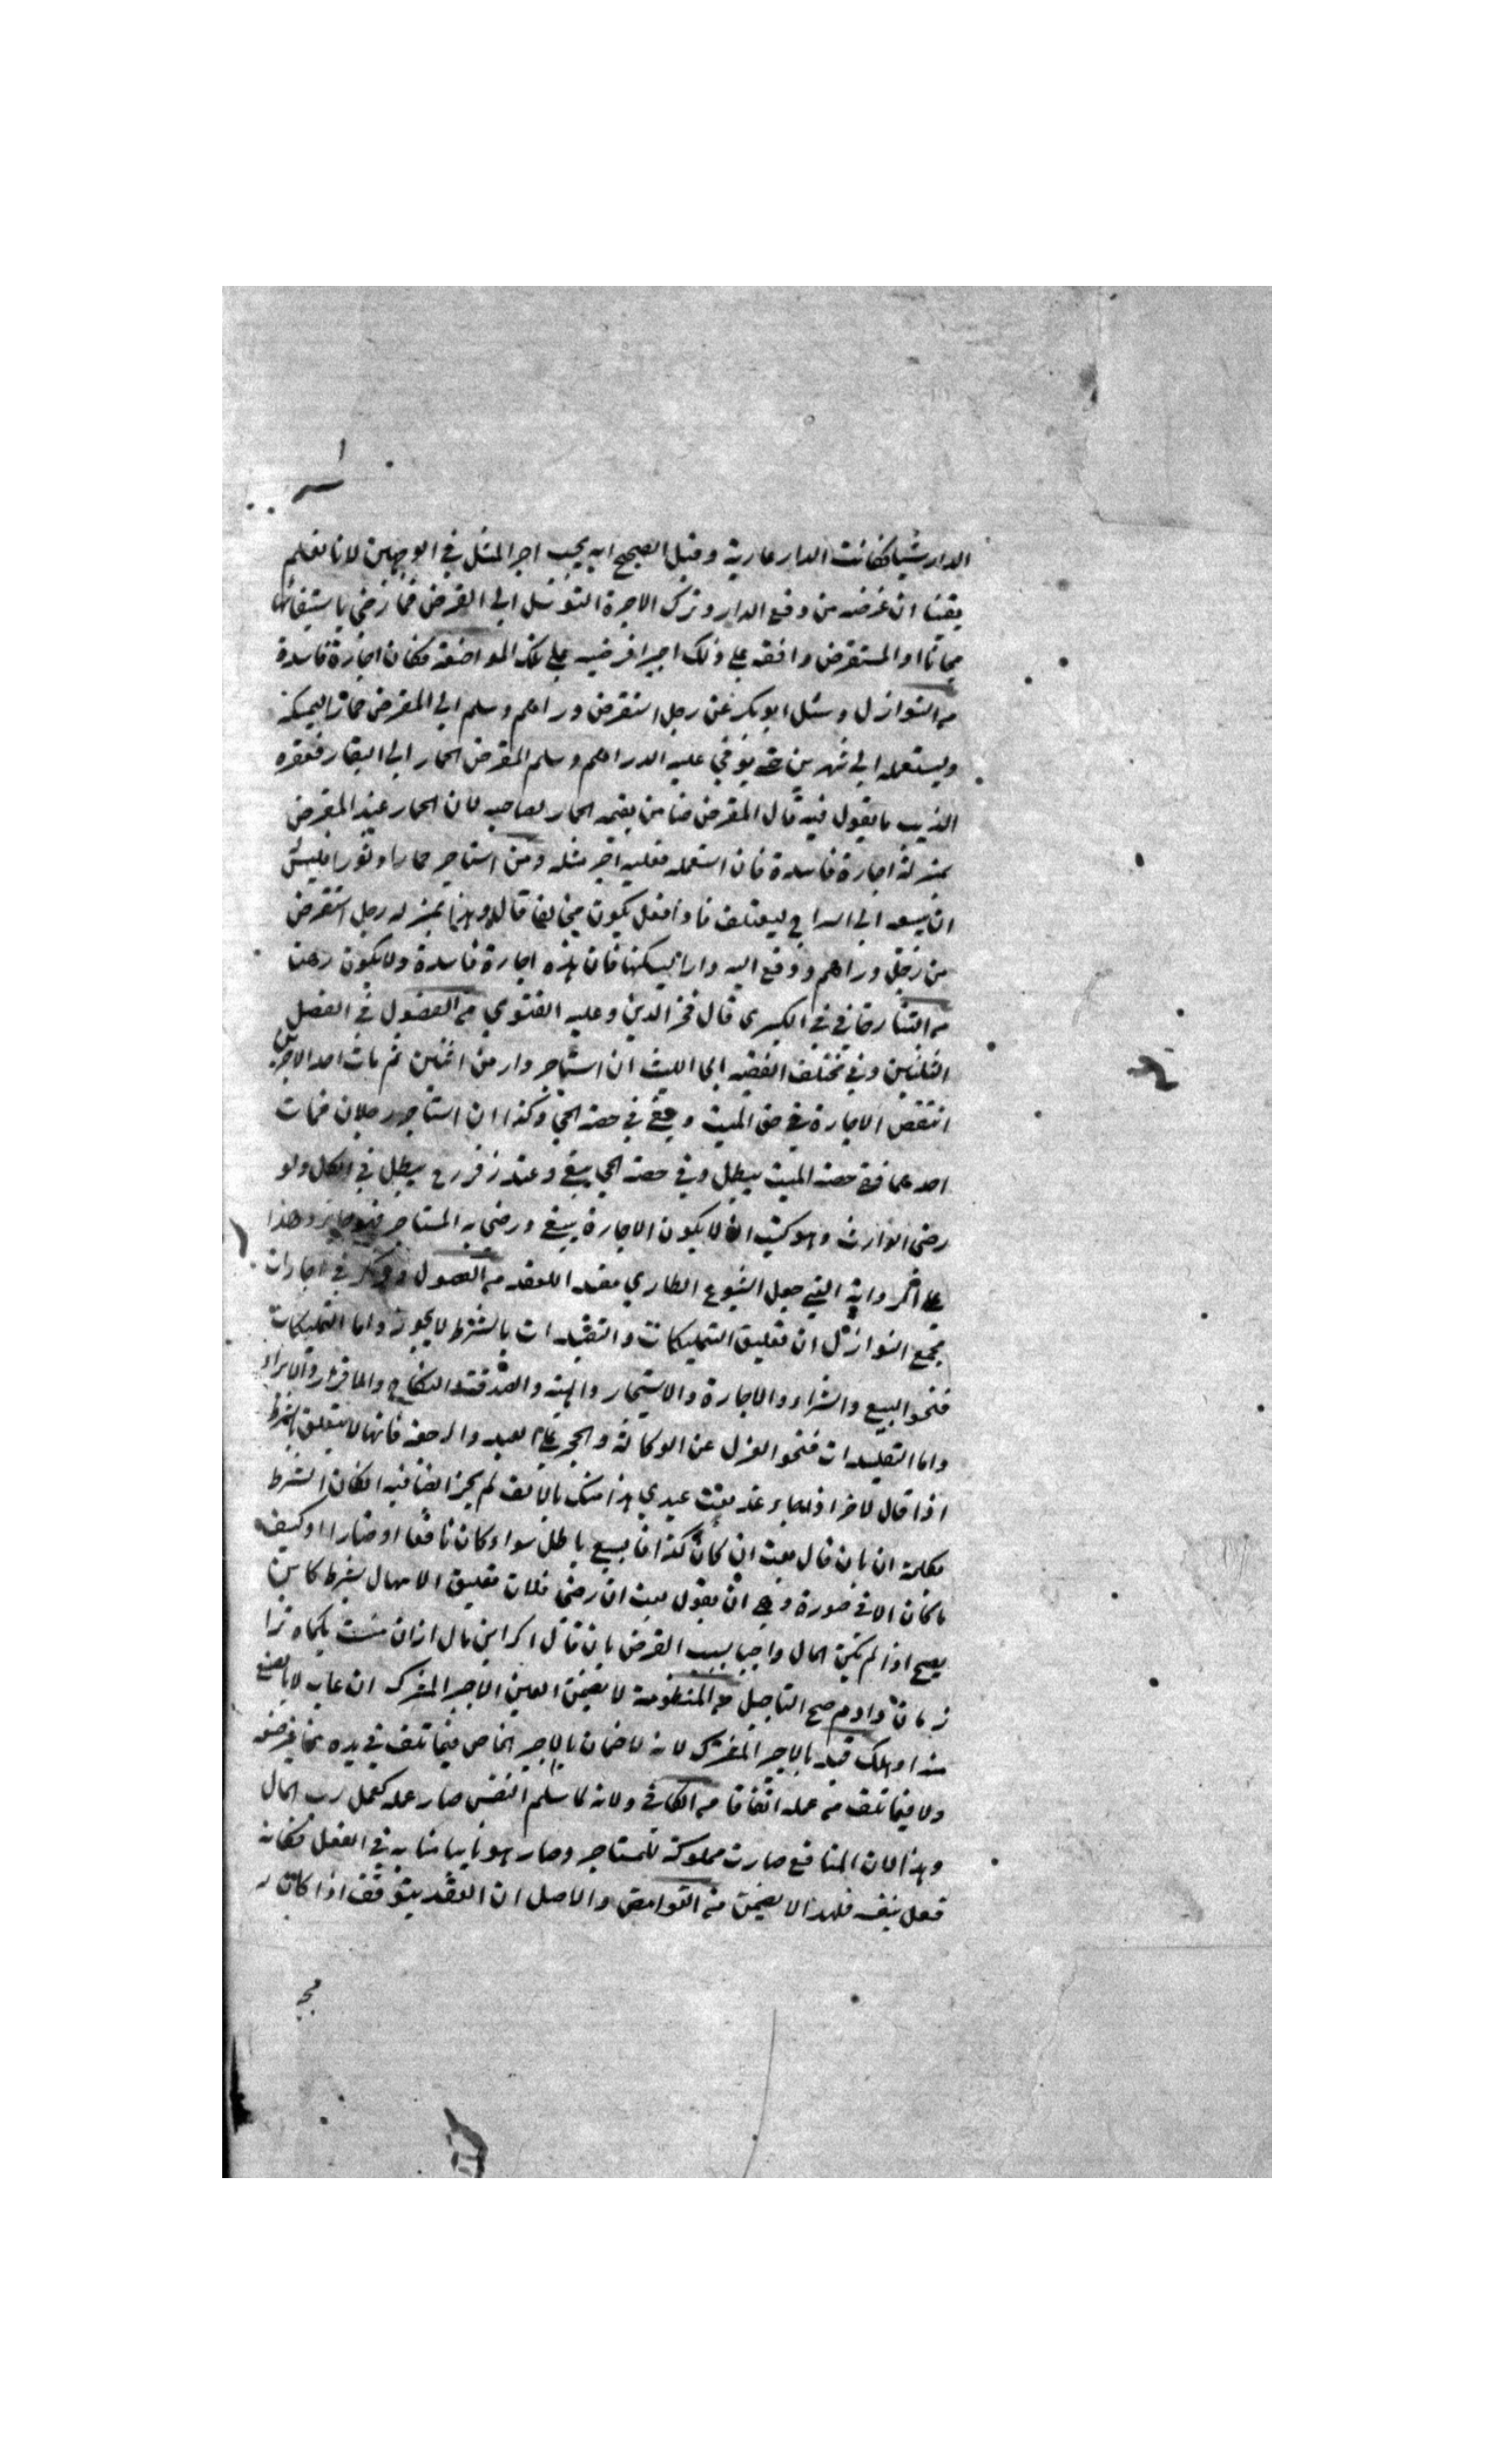 الدار شيا فكانت الدار عارية وقيل الصحيح انه يجب اجر المثل في الوجهين لانا نعلم
يقينا ان غرضه من دفع الدار وترك الاجرة التوسل الى القرض فما رضي باستيفائها
مجانا او المستقرض وافقه على ذلك على تلك المواضعة فكان اجارة فاسدة
من النوازل وسئل ابو بكر عن رجل استقرض دراهم وسلم الى المقرض حمارا ليمسكه
ويستعمله الى شهرين حتى يوفي عليه الدراهم وسلم المقرض الحمار الى البقار فعقره
الذيب ما يقول فيه قال المقرض ضامن بقيمة الحمار لصاحبه لان الحمار عند المقرض
بمنزلة اجارة فاسدة فان استعمله فعليه اجر مثله ومن استاجر حمارا او ثورا فليس
ان يبعث الى السراح ليعتلف فاذا فعل يكون مخالفا قال وهذا بمنزلة رجل استقرض
من رجل دراهم ودفع اليه دارا ليسكنها فان هذه اجارة فاسدة ولا يكون رهنا
من التتارخاني في الكبرى قال فخر الدين وعليه الفتوى من الفصول في الفصل
الثلثين وفي مختلف الفقيه ابي الليث ان استاجر دار من اثنين ثم مات احد الاجرين
انتقض الاجارة في حق الميت وبقي في حصة الحي وكذا ان استاجر رجلان فمات
احدهما ففي حصة الميت يبطل وفي حصة الحي يبقى وعند زفر رح يبطل في الكل ولو
رضى الوارث وهو كبير ان يكون الاجارة يبقى ورضى به المستاجر فهو جايز وهذا
على رواية التي جعل الشيوع الطاري مفسد اللعقد من الفصول وذكر في اجارات
مجمع النوازل ان تعليق التمليكات والتقييدات بالشرط لا يجوز واما التمليكات
فنحو البيع والشراء والاجارة والاستيجار والهبة والصدقة والنكاح والاقرار والابراء
واما التقييدات فنحو العزل عن الوكالة والحجر على العبد والرجعة فانها لا يتعلق بالشرط
اذا قال لاخر اذا جاء غد بعت عبدي هذا منك بالالف لم يجز ايضا فيه ان كان الشرط
بكلمة ان بان قال بعت ان كان كذا فالبيع باطل سواء كان نافعا او ضارا او كيف
ما كان الا في صورة وهي ان يقول بعت ان رضى فلان تعليق الامهال بشرط كاين
يصح اذا لم يكن المال واجبا بسبب القرض بان قال اكر اين مال ازان منست يكماه ترا
زمان دادم صح التاجيل من المنظومة لا يضمن العين الاجير المشترك ان غاب لا بالصنع
منه او هلك قيد بالاجير المشترك لانه لا ضمان بالاجير الخاص فيما تلف في يده
ولا فيما تلف من عمله اتفاقا من الكافي ولانه لما سلم النفس صار عمله كعمل رب المال
وهذا لان المنافع صارت مملوكة للمستاجر وصار هو نايبا منابه في الفعل فكانه
فعل بنفسه فلهذا لا يضمن من الغوامض والاصل ان العقد يتوقف اذا كان له